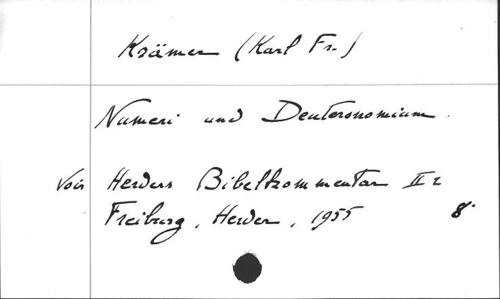 Krämer (Karl Fr.)
Numeri und Deuteronomium.
Voir Herders Bibelkommentar II 1
Freiburg, Herder, 1955 8°